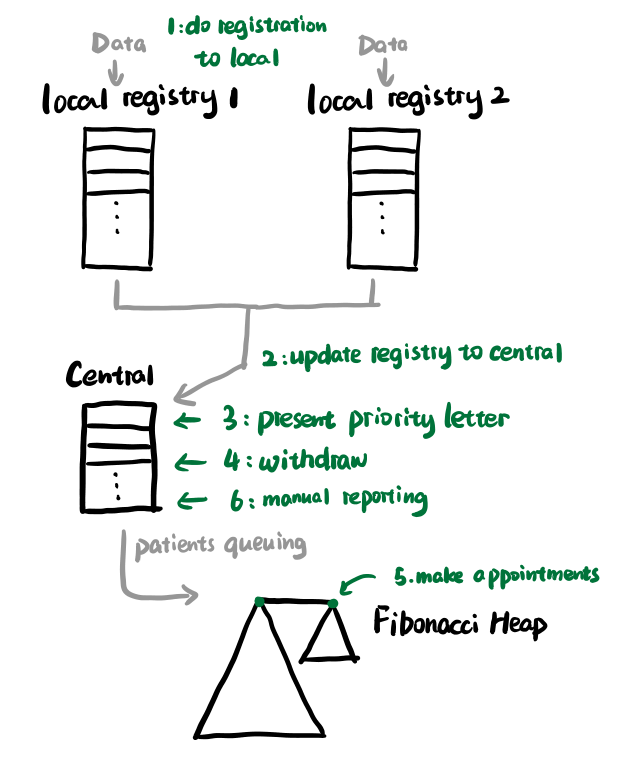 Data
1:do registration
to local
Data
local registry 1
local registry 2
2:update registry to central
Central
3: present priority letter
4: withdraw
6: manual reporting
patients queuing
5.make appointments
Fibonacci Heap